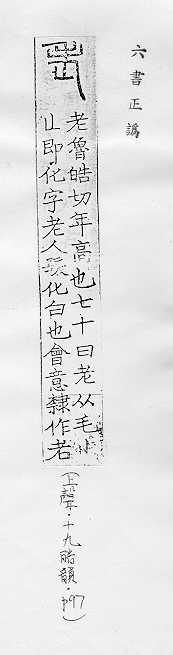 六書正譌
老魯皓切年高也七十曰老从毛从
匕即化字老人髮化白也會意隸作老
(上聲·十九皓韻·p97)